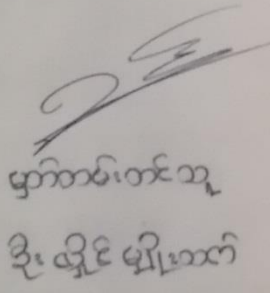 မှတ်တမ်းတင်သူ
ဦး လှိုင် မျိုးသက်